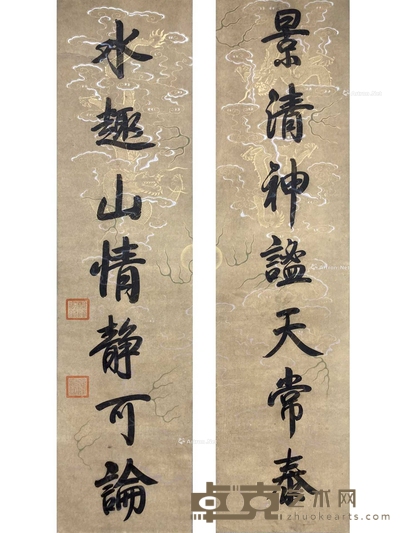 景清神謐天常泰
水趣山情静可論
卓克艺术网
zhuokearts.com